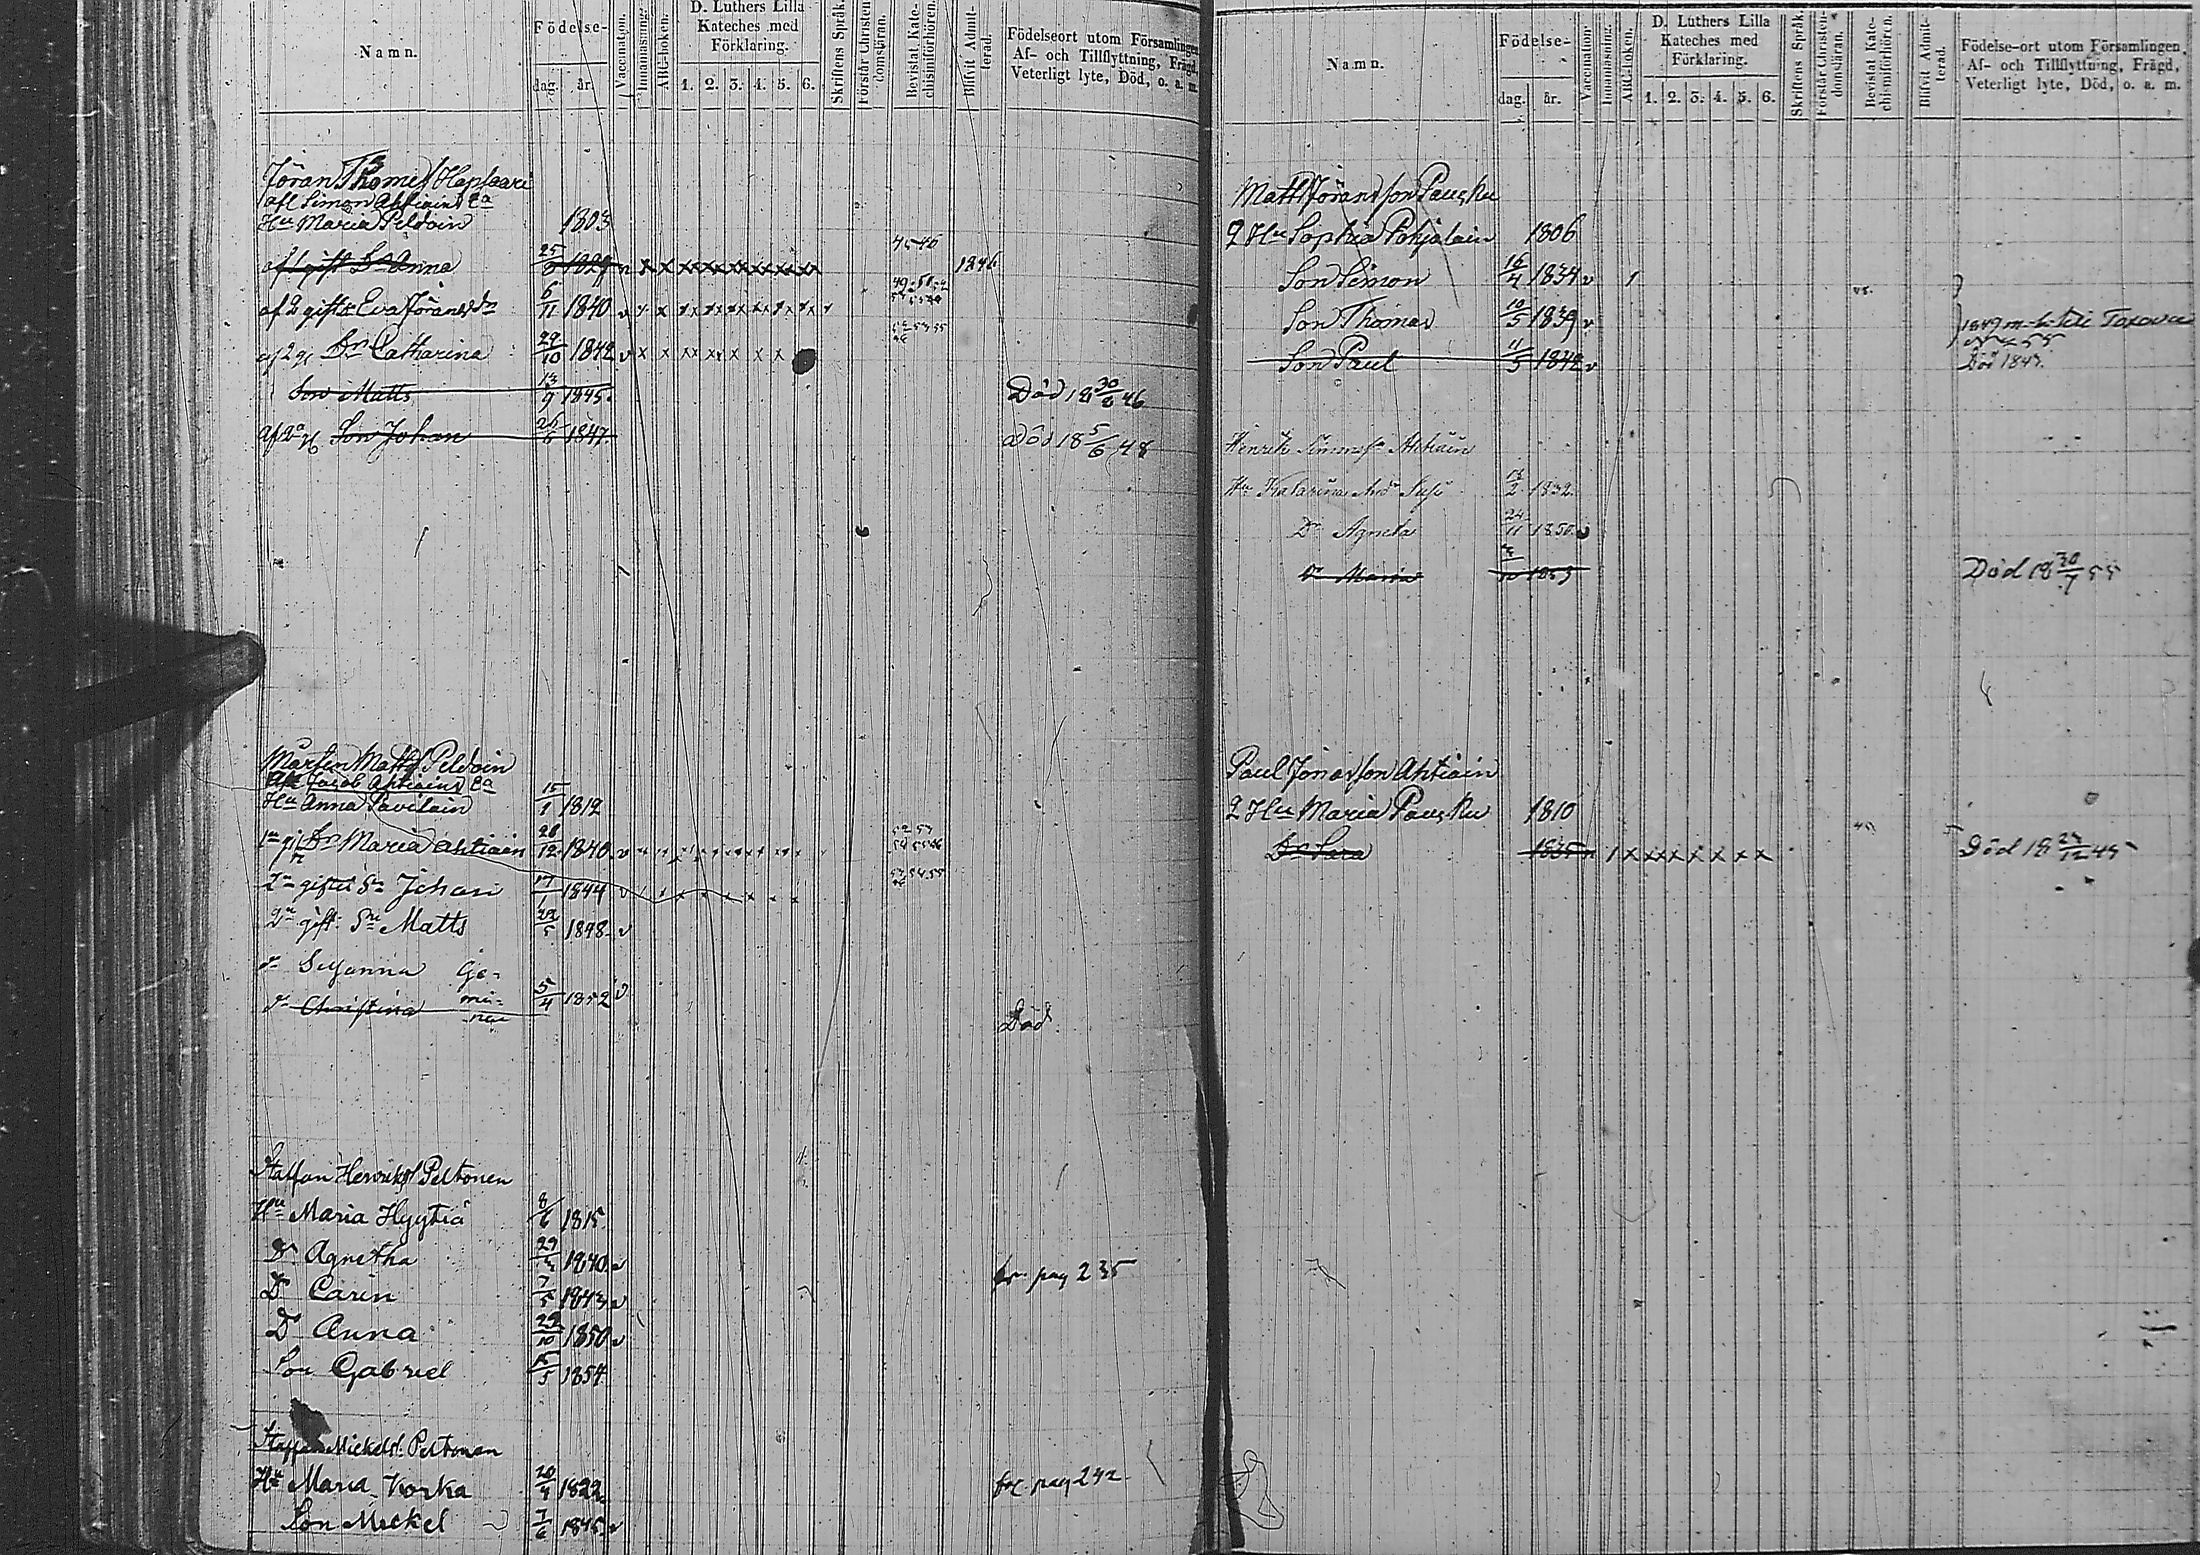 Namn.
Födelse-
dag. år.
Vaccination.
Innanläsning.
ABC-boken.
D. Luthers Lilla
Kateches med
Förklaring.
1. 2. 3. 4. 5. 6.
Skriftens Språk.
Förstår Christen-
domsläran.
Bevistat Kate-
chismiförhören.
Blifvit Admit-
terad.
Födelseort utom Församlingen,
Af- och Tillflyttning, Frägd,
Veterligt lyte, Död, o. a. m.
Jöran Thomess Hapsaari
afl Simon Ahtiains Ea
Hu Maria Peldoin 1803
45 46
af 1 gift Dr Anna 1829 v x x x x x x x x x x 1846
af 2 gift Dr Eva Jöransdr 6/11 1840 v
af 2 gi Dr Catharina 29/10 1842 v x x x x x x x
Son Matts 13/9 1845. Död 18 30/8 46
af 2a g Son Johan 1847 Död 18 5/6 48
Mårten Matts Peldoin
Afl Jacob Ahtiains Ea
Hu Anna Pavilain 15/1 1812
1n gi Dr Maria Ahtiain 28/12 1840. v
2n giftet Sn Johan 17/1 1844 v
2n gift. Sn Matts 22/5 1848. v
dr Susanna Ge-
dr Christina mi- 5/4 1852 v
nae Död.
Staffan Henrikss Peltonen
Hu Maria Hyytiä 8/6 1815
Dr Agnetha 1840. v fr. pag 235
Dr Carin 7/5 1843. v
Dr Anna 29/10 1850 v
Son Gabriel 15/5 1854
Staffan Mickels. Peltonen
Hu Maria Korka 20/4 1822. fr. pag 242
Son Mickel 7/6 1845. v
Namn.
Födelse-
dag. år.
Vaccination.
Innanläsning.
ABC-boken.
D. Luthers Lilla
Kateches med
Förklaring.
1. 2. 3. 4. 5. 6.
Skriftens Språk.
Förstår Christen-
domsläran.
Bevistat Kate-
chismiförhören.
Blifvit Admit-
terad.
Födelse-ort utom Församlingen,
Af- och Tillflyttning, Frägd,
Veterligt lyte, Död, o. a. m.
Matts Jöransson Pausku
2 Hu Sophia Pohjolain 1806
Son Simon 16/4 1834 v
Son Thomas 10/5 1839 v
Son Paul 11/5 1842 v Död 1843.
Henrik Simonss Ahtiain
Hu Katarina Andr Susi 2 1832.
Dr Agneta 24/11 1850.
Dr Maria 1853 Död 18 30/7 55
Paul Jonasson Ahtiain
2 Hu Maria Pausku 1810
Dr Sara 1835 Död 18 27/12 45